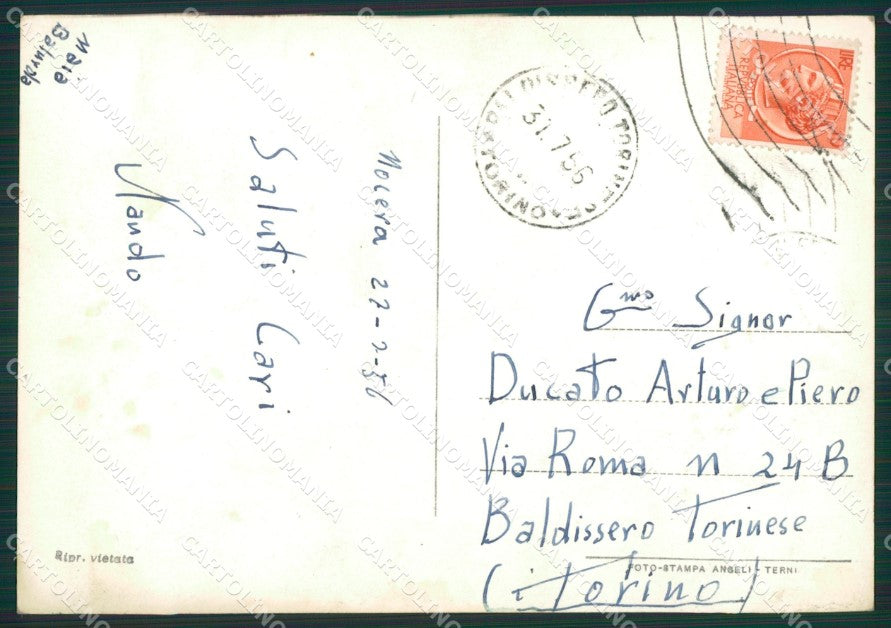 Nocera 27-7-56
Saluti Cari
Nando
31.7.56
LIRE
REPUBBLICA
ITALIANA
G.mo Signor
Ducato Arturo e Piero
Via Roma n 24 B
Baldissero Torinese
(Torino)
Ripr. vietata
FOTO-STAMPA ANGELI - TERNI
CARTOLINOMANIA